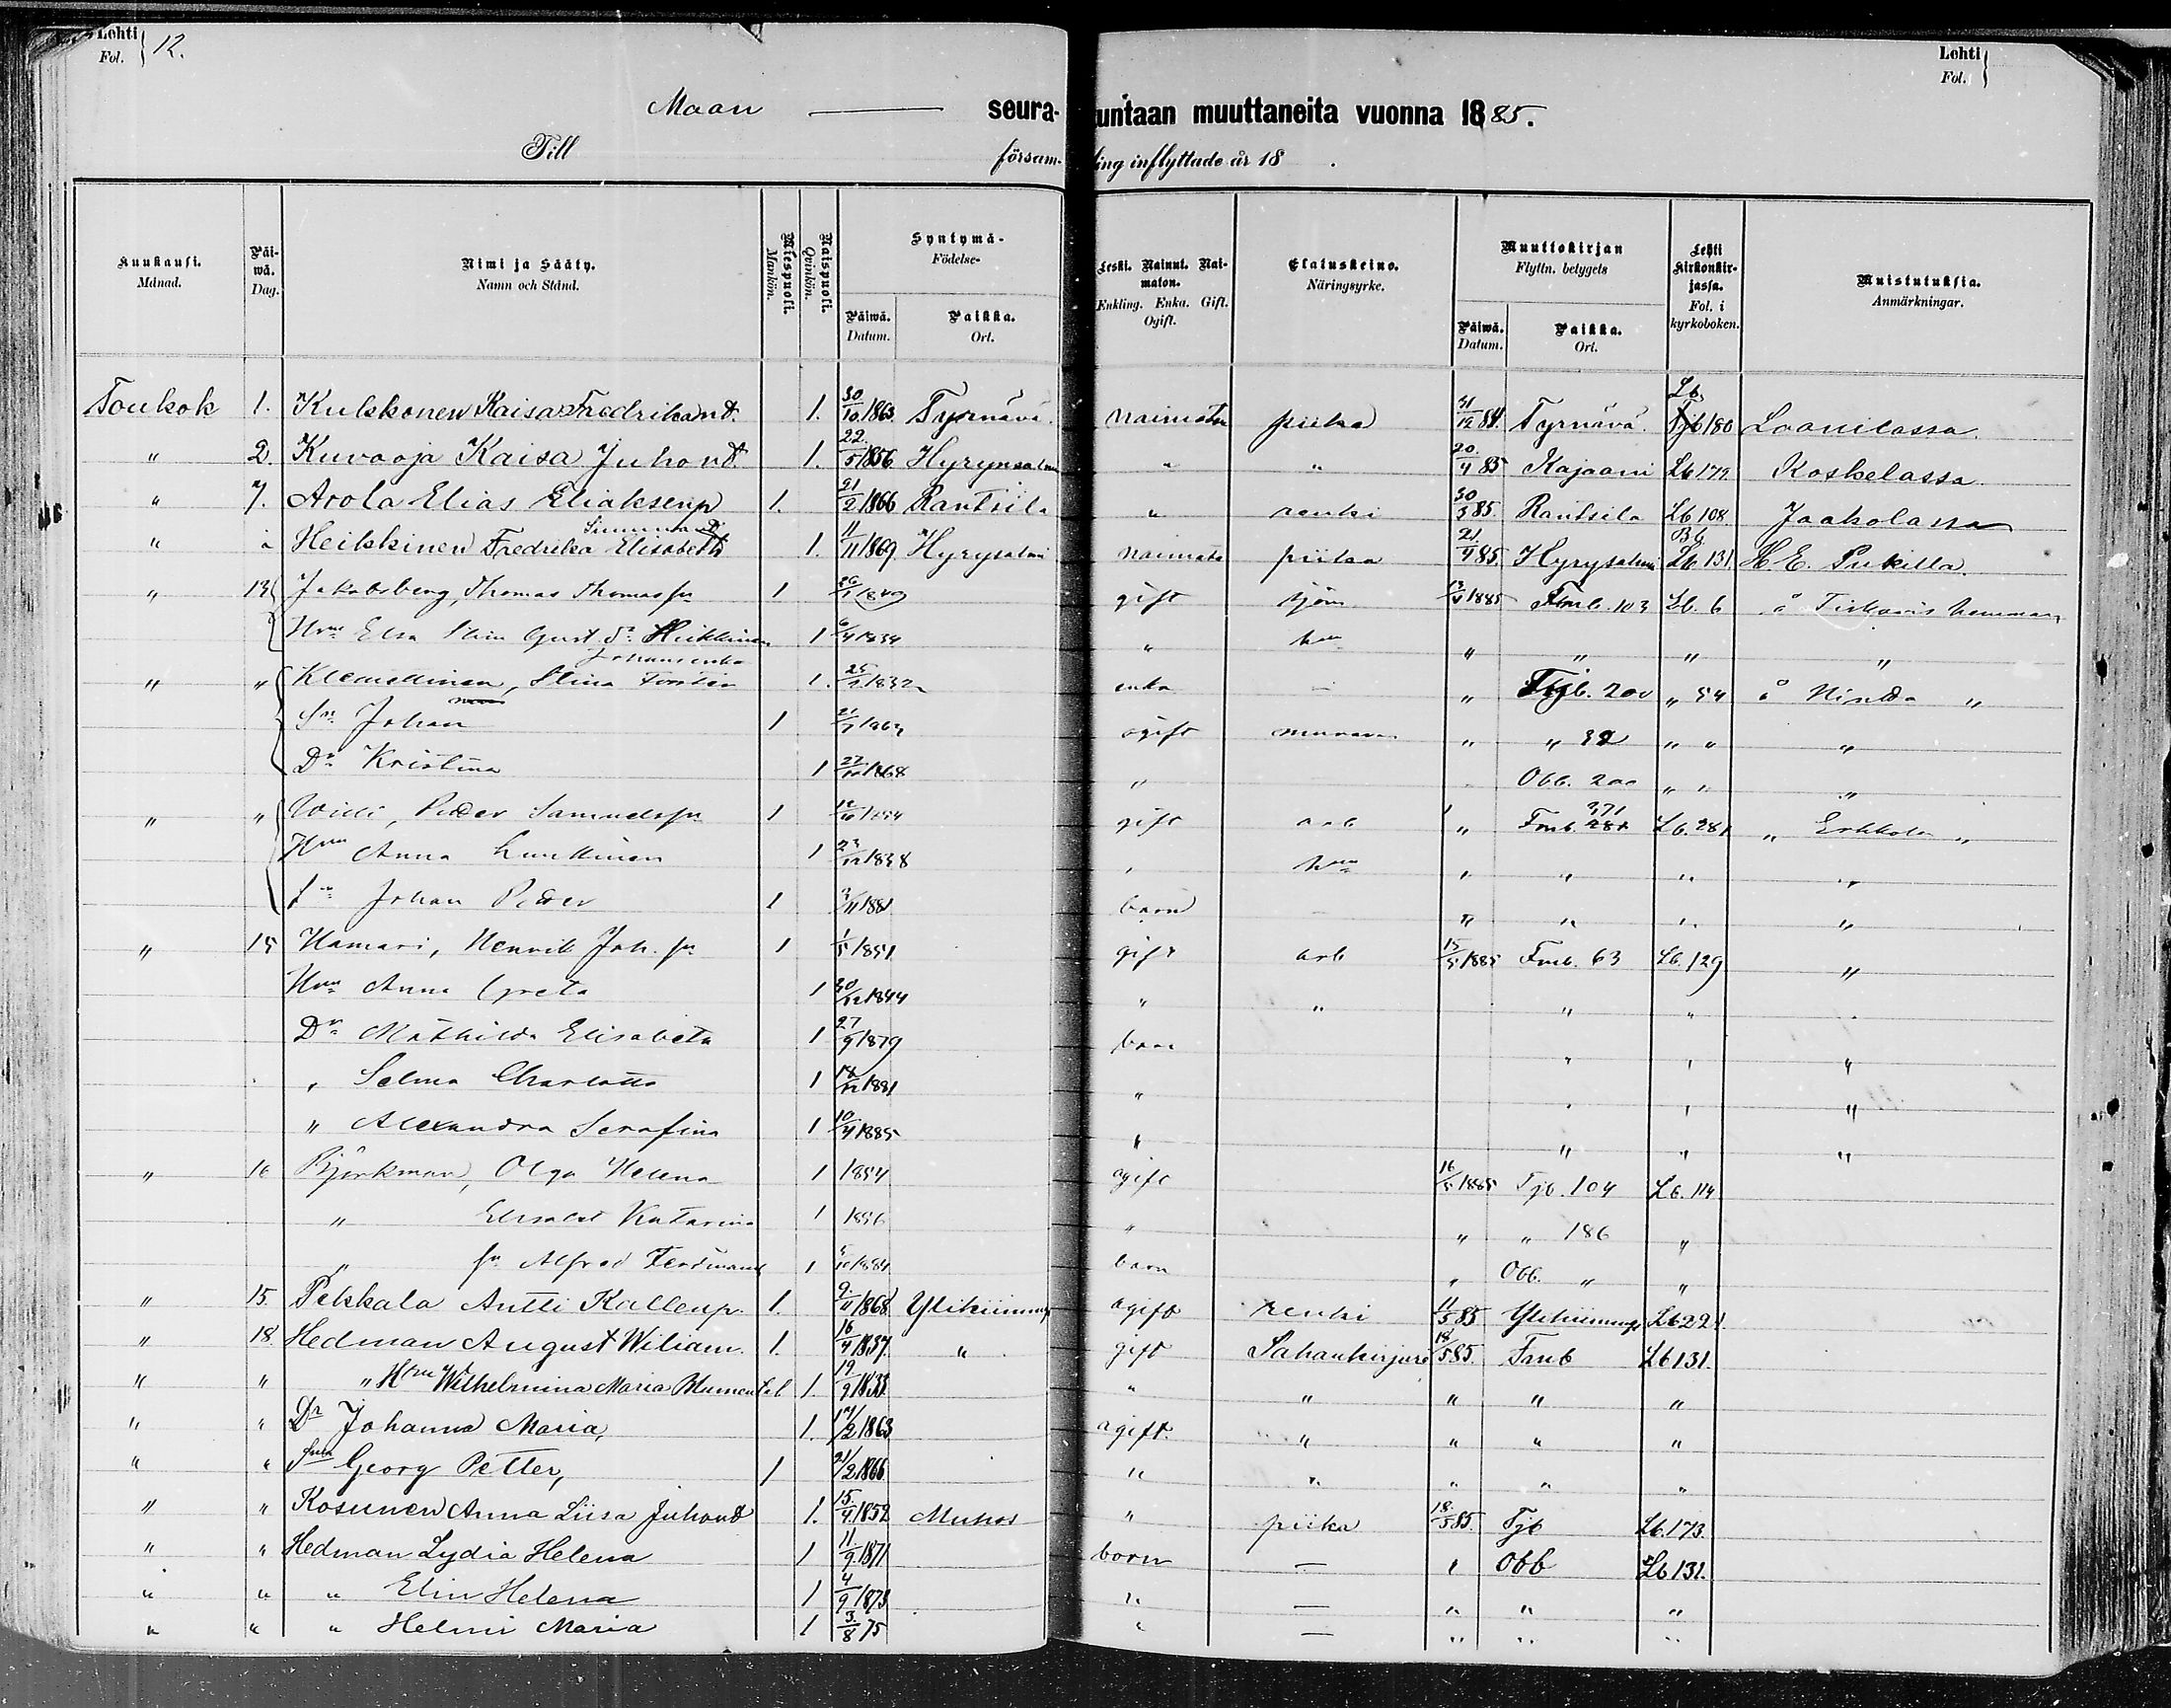 Lehti
Fol. } 12.
Lehti
Fol. }
Maan seura- untaan muuttaneita vuonna 1885.
Till försam- ling inflyttade år 18 .
Kuukausi. Månad. Päi-wä. Dag. Nimi ja Sääty. Namn och Stånd. Miespuoli. Mankön. Naispuoli. Qvinkön. Syntymä- Födelse- Päiwä. Datum. Paikka. Ort. Leski. Nainut. Nai-maton. Enkling. Enka. Gift. Ogift. Elatuskeino. Näringsyrke. Muuttokirjan Flyttn. betygets Päiwä. Datum. Paikka. Ort. Lehti Kirkonkir-jassa. Fol. i kyrkoboken. Muistutuksia. Anmärkningar.
Toukok 1. Kulkkonen Kaisa Fredrika 1. 30/10 1863. Tyrnävä. naimaton piika 31/12 84. Tyrnävä. Lb. 180 Laanilassa.
" 2. Kuvaoja Kaisa Juhont. 1. 22/5 1856. Hyrynsalmi " " 20/4 85 Kajaani Lb 179. Koskelassa.
" 7. Arola Elias Eliaksenp 1. 21/2 1866 Rantsila " renki 30/3 85. Rantsila Lb 108 Jaakolassa
" " Heikkinen Fredrika Elisabeth 1. 11/11 1869. Hyrysalmi naimato piikaa 21/4 85. Hyrysalmi Lb 131. H. E. Pukilla.
" 13 Jakobsberg, Thomas Thomass'n 1 gift sjöm 13/5 1885 Fmb. 103 Lb. 6 å hemman
Hru Elsa Gust. dr Heikkinen 1 " " " " "
" " Klemettinen, Stina 1. 25/ 1832 enka — " Tjb. 200 " 54 å "
Sn Johan 1 ogift " " 32 " " "
Dr Kristina 1 27/10 1868 " " Obb. 200 " " "
" " Willi, Petter Samuelss'n 1 gift arb " Fmb. 371 Lb. 281 " Erkkola "
Hru Anna 1 23/12 1838 " " " " "
Sn Johan Petter 1 /11 1881 barn " " " "
" 15 Hamari, Henrik Joh. s'n 1 1/5 1851 gift arb 15/5 1885 Fmb. 63 Lb. 129 "
Hru Anna Greta 1 30/12 1844 " " " "
Dr Mathilda Elisabeta 1 27/9 1879 barn " " "
" Selma Charlotta 1 18/12 1881 " " " "
" Alexandra Serafina 1 10/4 1885 " " " "
" 16 Björkman, Olga Helena 1 1854 ogift 16/5 1885 Tjb. 104 Lb. 114
" Elisabet Katarina 1 1856 " " " 186 "
" sn Alfred Ferdinand 1 barn " Obb. " "
" 15. Pekkala Antti Kallenp. 1. 9/11 1868 Ylikiiminki ogift renki 11/5 85 Ylikiiminki Lb 221.
" 18. Hedman August Wiliam. 1. 16/4 1837. " gift Sahankirjuri 18/5 85. Fmb Lb 131.
" " " Hru Wilhelmina Maria Blumental 1. 19/9 1833 " " " " "
" " Dr Johanna Maria, 1. 14/2 1863 ogift. " " " "
" " Georg Petter, 1 21/2 1866. " " " " "
" " Kosunen Anna Liisa Juhont 1. 15/4 1852 Muhos " piika 18/5 85. Tjb Lb. 173.
" " Hedman Lydia Helena 1 11/9 1871 barn — " Obb Lb 131.
" " " Elin Helena 1 4/9 1873 " — " " "
" " " Helmi Maria 1 3/8 75 " — " " "